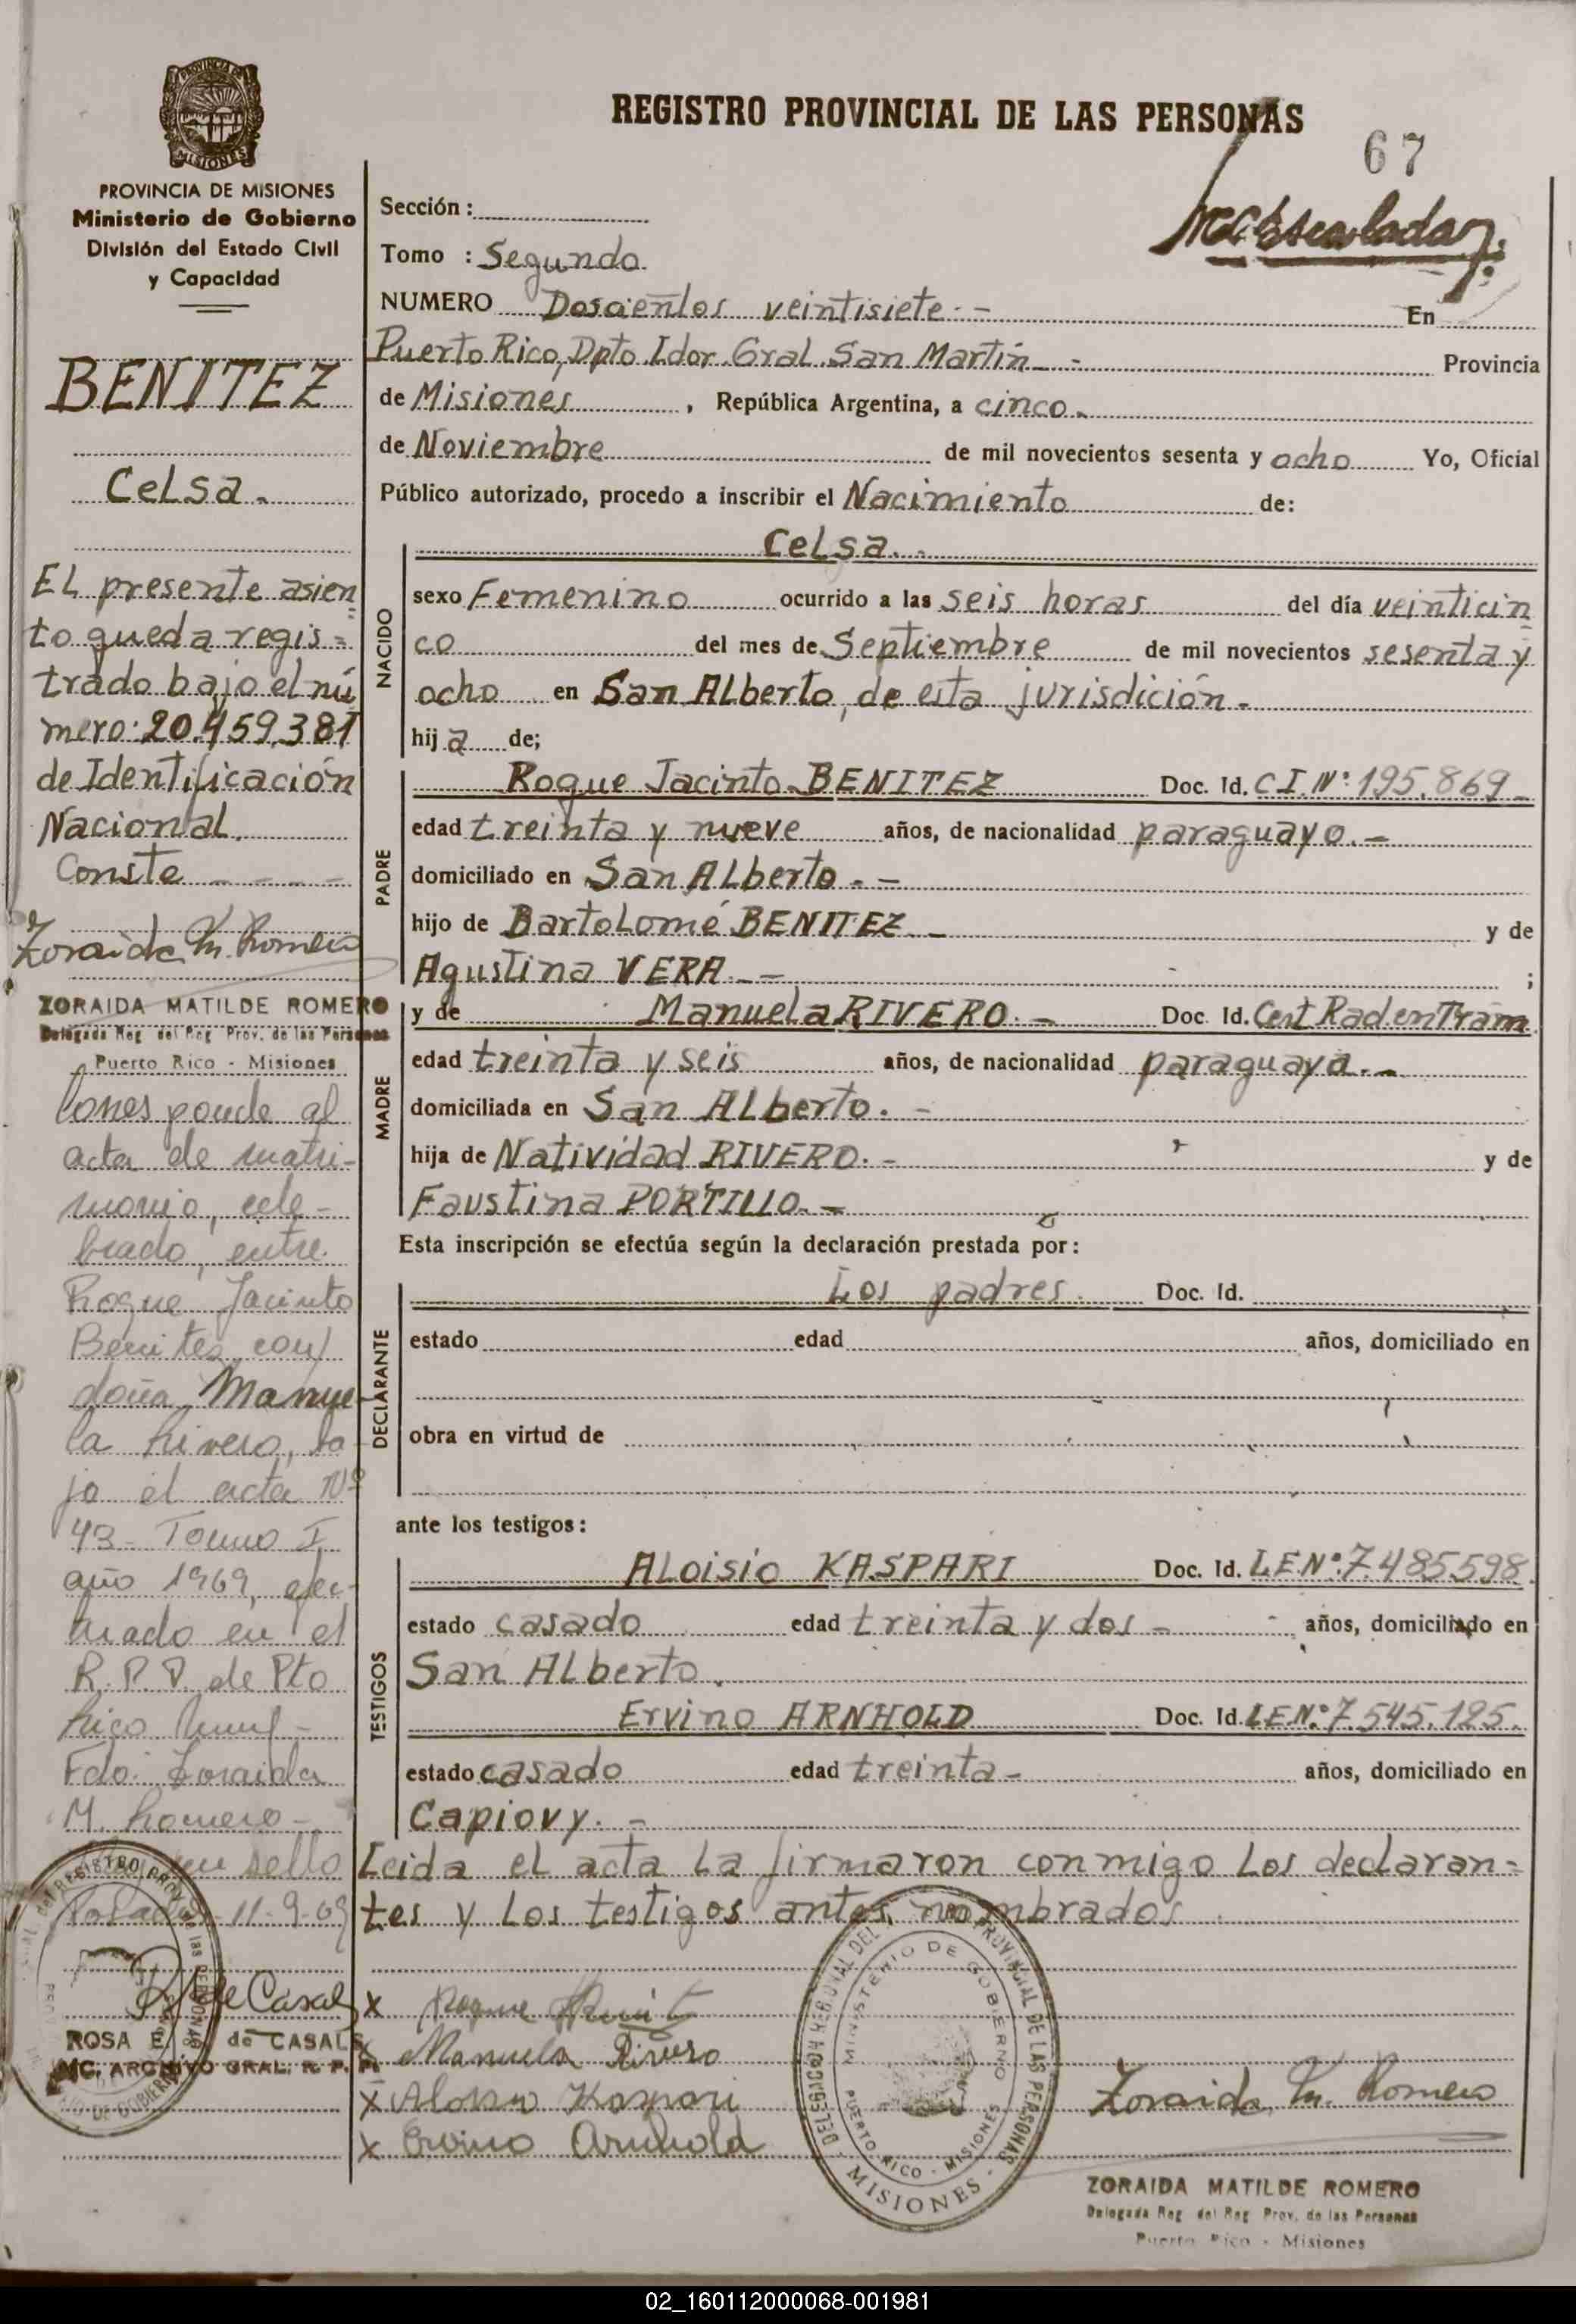 REGISTRO PROVINCIAL DE LAS PERSONAS
67
PROVINCIA DE MISIONES
Ministerio de Gobierno
División del Estado Civil
y Capacidad
BENITEZ
Celsa.
El presente asien
to queda regis=
trado bajo el nú
mero: 20.459.381
de Identificación
Nacional.
Conste - - - -
Zoraida M. Romero
ZORAIDA MATILDE ROMERO
Delegada Reg del Reg Prov. de las Personas
Puerto Rico - Misiones
acta de matri-
monio, cele-
brado, entre
Roque Jacinto
Benites con
doña Manue-
la Rivero, ba
jo el acta Nº
43 - Tomo I
año 1969, efec-
tuado en el
R. P. P. de Pto
Rico
Fdo. Zoraida
M. Romero -
un sello
11-9-69
R de Casals
ROSA E. de CASALS
ENC. ARCHIVO GRAL. R. P. P.
Sección :
Tomo : Segundo
NUMERO Doscientos veintisiete.- En
Puerto Rico, Dpto Ldor. Gral. San Martín - Provincia
de Misiones , República Argentina, a cinco.
de Noviembre de mil novecientos sesenta y ocho Yo, Oficial
Público autorizado, procedo a inscribir el Nacimiento de:
NACIDO
Celsa..
sexo Femenino ocurrido a las seis horas del día veinticin
co del mes de Septiembre de mil novecientos sesenta y
ocho en San Alberto, de esta jurisdición-
hij a de;
PADRE
Roque Jacinto BENITEZ Doc. Id. C.I.Nº 195.869-
edad treinta y nueve años, de nacionalidad paraguayo.-
domiciliado en San Alberto.-
hijo de Bartolomé BENITEZ.- y de
Agustina VERA.- ;
MADRE
y de Manuela RIVERO.- Doc. Id. Cert Rad en Tram
edad treinta y seis años, de nacionalidad paraguaya.-
domiciliada en San Alberto.-
hija de Natividad RIVERO.- y de
Faustina PORTILLO.-
Esta inscripción se efectúa según la declaración prestada por:
DECLARANTE
Los padres. Doc. Id.
estado edad años, domiciliado en
obra en virtud de
ante los testigos:
TESTIGOS
Aloisio KASPARI Doc. Id. L.E.Nº:7.485.598.
estado casado edad treinta y dos - años, domiciliado en
San Alberto.
Ervino ARNHOLD Doc. Id. L.E.Nº:7.545.125.
estado casado edad treinta- años, domiciliado en
Capiovy.-
Leida el acta la firmaron conmigo los declaran=
tes y los testigos antes nombrados.
x Roque
x Manuela Rivero
x Kaspari
x Ervino Arnhold
DELEGACION REGIONAL DEL PROVINCIAL DE LAS PERSONAS
MINISTERIO DE GOBIERNO
PUERTO RICO - MISIONES
MISIONES
Zoraida M. Romero
ZORAIDA MATILDE ROMERO
Delegada Reg del Reg Prov. de las Personas
Puerto Rico - Misiones
02_160112000068-001981